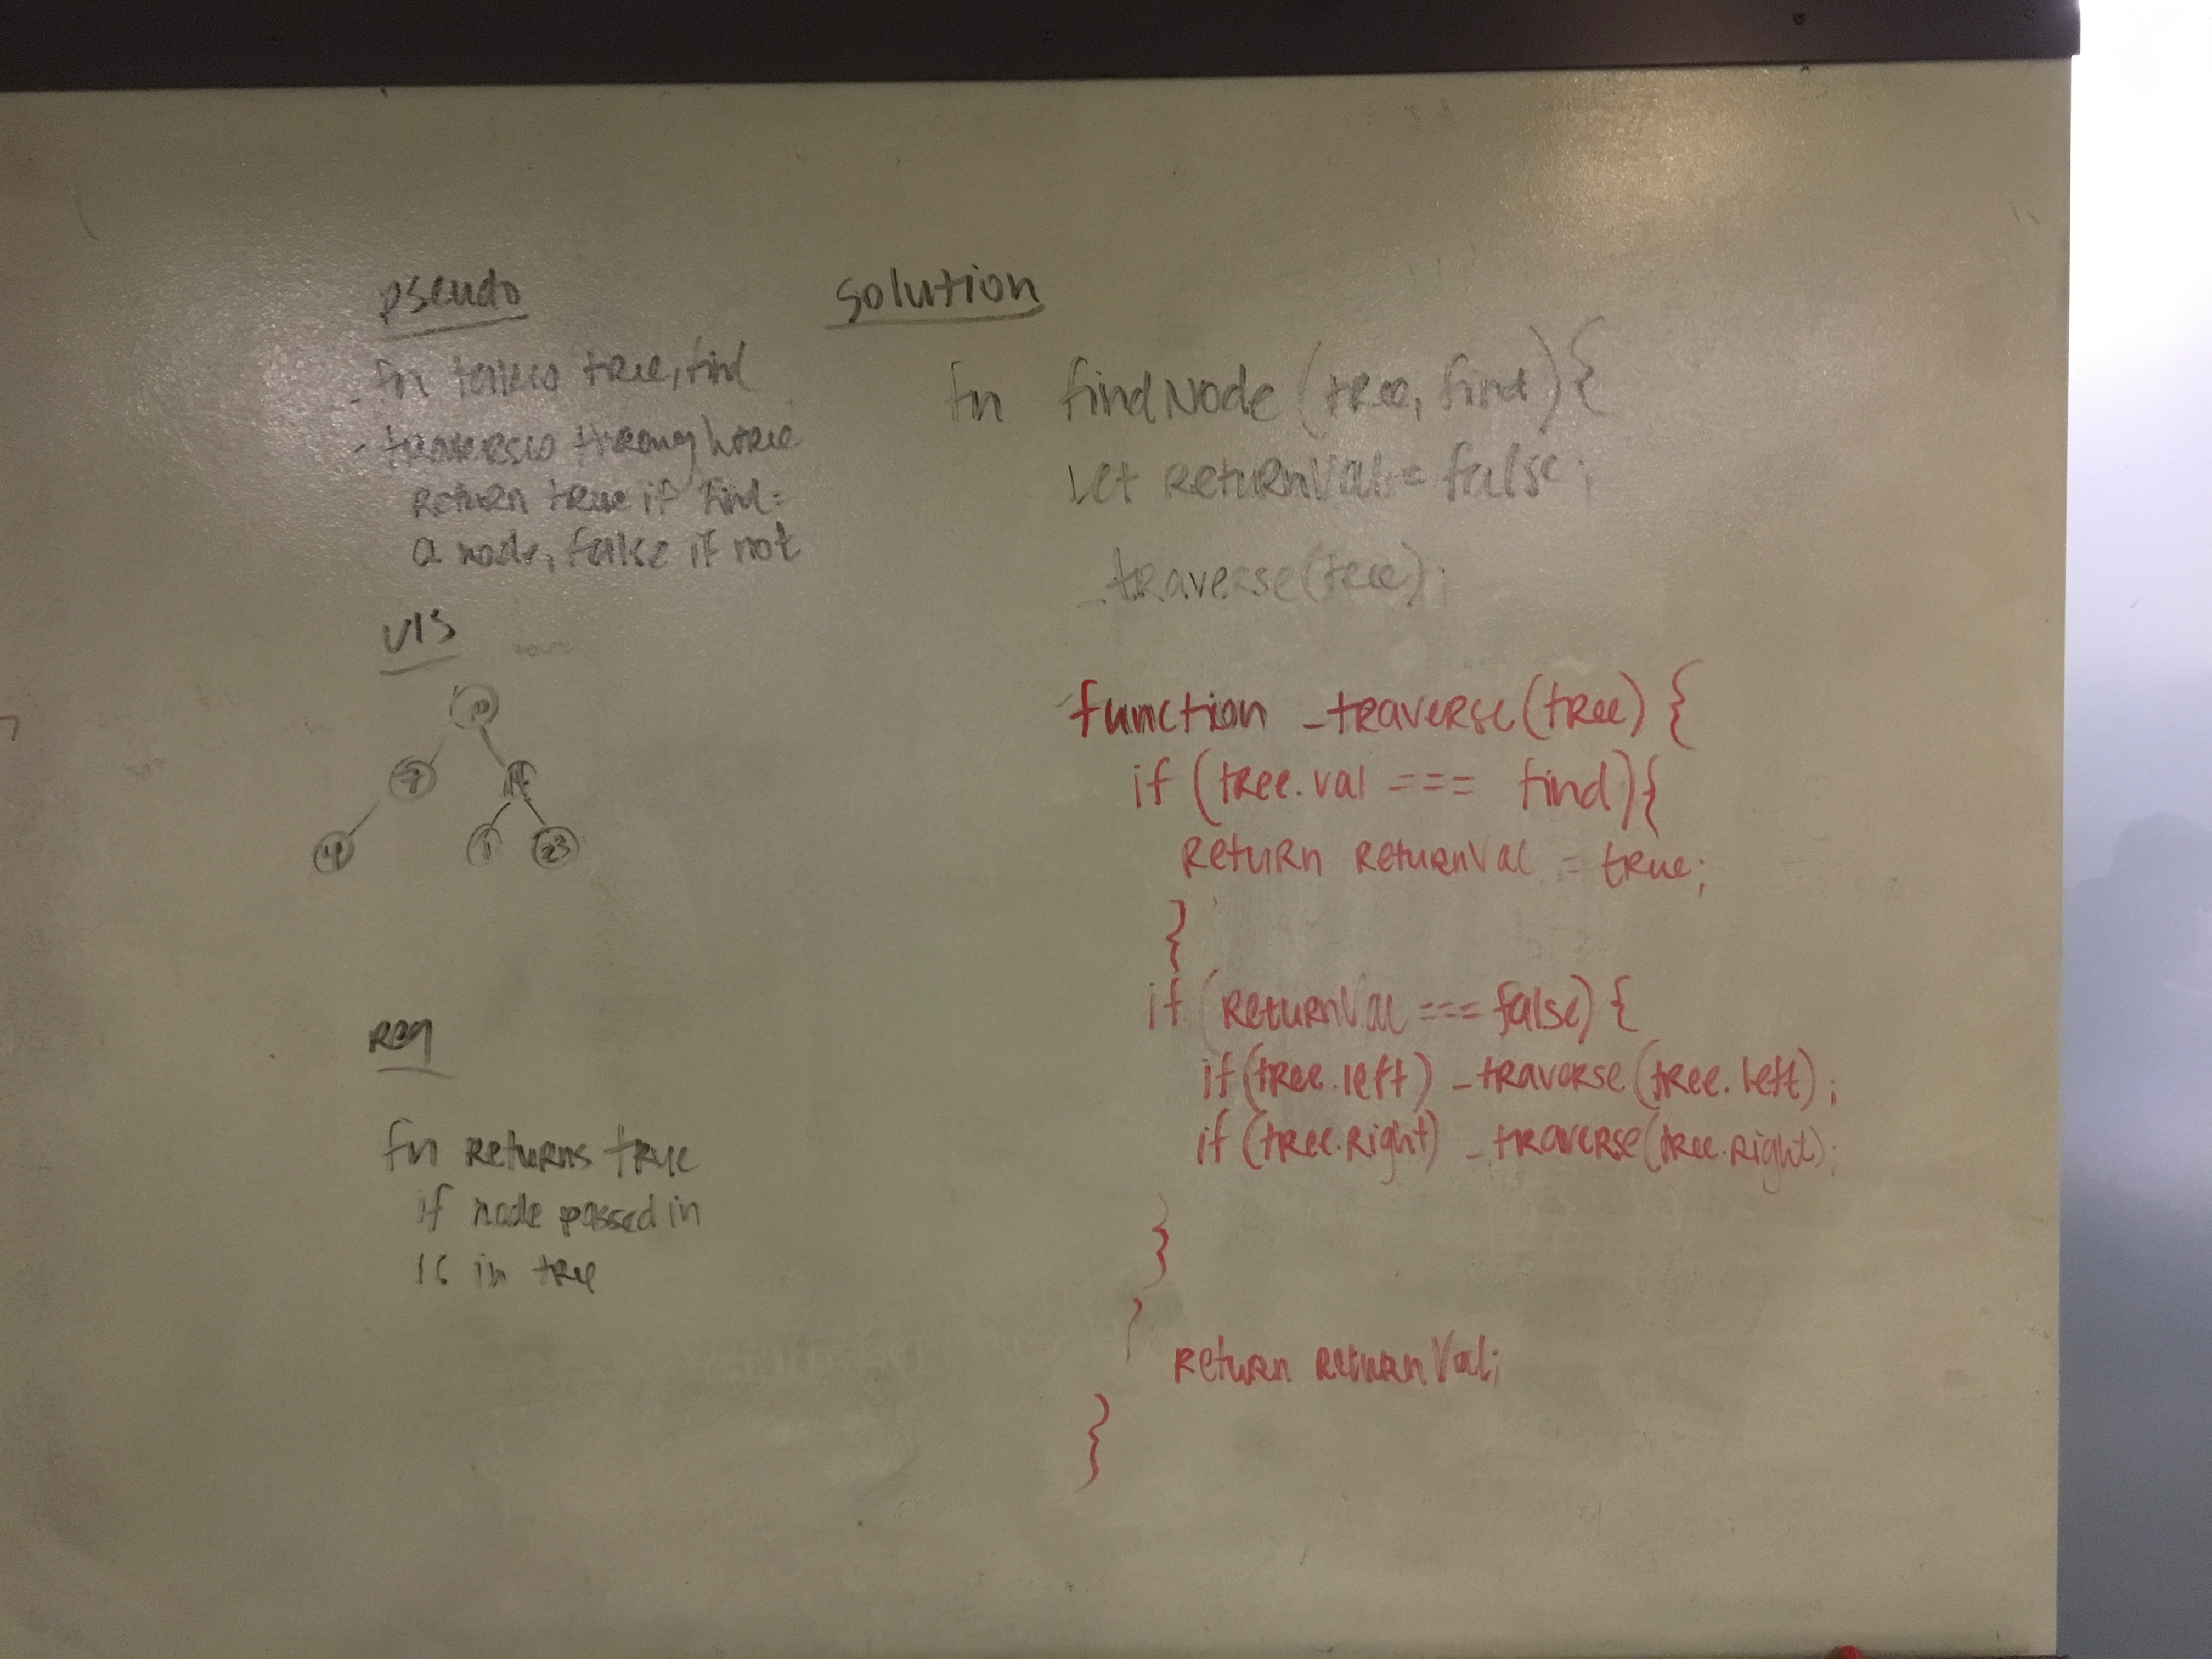 pseudo
- fn takes tree, find
- traverses through tree
return true if find =
a node, false if not
VIS
10
7
4
23
req
fn returns true
if node passed in
is in tree
solution
fn findNode (tree, find) {
let returnVal = false;
_traverse(tree);
function _traverse(tree) {
if (tree.val === find) {
return returnVal = true;
}
if (returnVal === false) {
if (tree.left) _traverse(tree.left);
if (tree.right) _traverse(tree.right);
}
}
return returnVal;
}